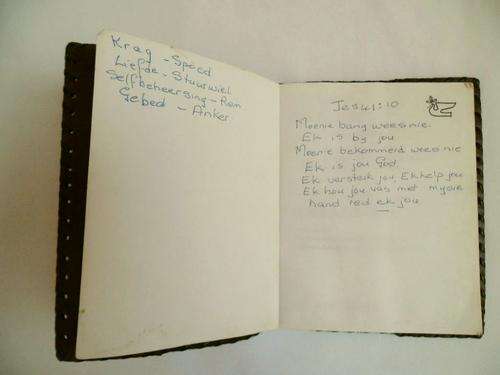 Krag - Spoed
Liefde - Stuurwiel
Selfbeheersing - Rem
Gebed - Anker
Jes 41:10
Moenie bang wees nie.
Ek is by jou
Moenie bekommerd wees nie
Ek is jou God.
Ek versterk jou, Ek help jou
Ek hou jou vas met my eie
hand red ek jou